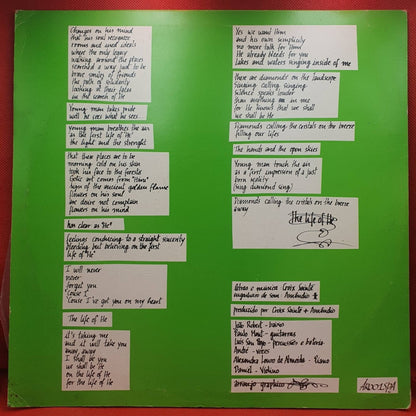 Changes on his mind
that his soul recognize
rooms and and ideals
where the only legacy
walking around the places
searched a way just to be
brave smiles of friends
the path of solidarity
looking at their fate
in the search of He
Young man takes pride
well he sees what he sees...
young man breathes the air
in the first life of "He"
the light and the strenght
that their places are to be
morning cold on his skin
took his face to the fossils
Gotic art comes from "Hans"
sign of the ancient golden flame
flowers on his soul
we desire not complain
flowers on his mind
han clear as "He"
feelings conducing to a straight sincerity
bleeding but believing on the first
life of "He"
I will never
never
forget you
'cause I
'cause I've got you on my heart
The life of He
it's taking me
and it will take you
away, away
I shall be you
we shall be He
on the life of He
for the life of He
Yes we want Him
and his own simplicity
no more talk for Him
He already bleeds for you
Lakes and waters singing inside of me
these are diamonds on the landscape
Singing calling singing
silence speaks louder
than anything on in me
for He himself that we shall
we shall be He
Diamonds calling the cristals on the breeze
filling our lifes
The hands and the open skies
Young man touch the air
as a first impression of a just
born reality
(ring diamond ring)
Diamonds calling the cristals on the breeze
away
the life of He
letras e música Croix Sainte
engenheiro de som Amândio
produzido por Croix Sainte e Amândio
João Robert - baixo
Paulo Hunt - guitarras
Luís San Payo - percussões e bateria
André - vozes
Alexandra Louro de Almeida - Piano
Daniel - Violino
arranjo gráfico